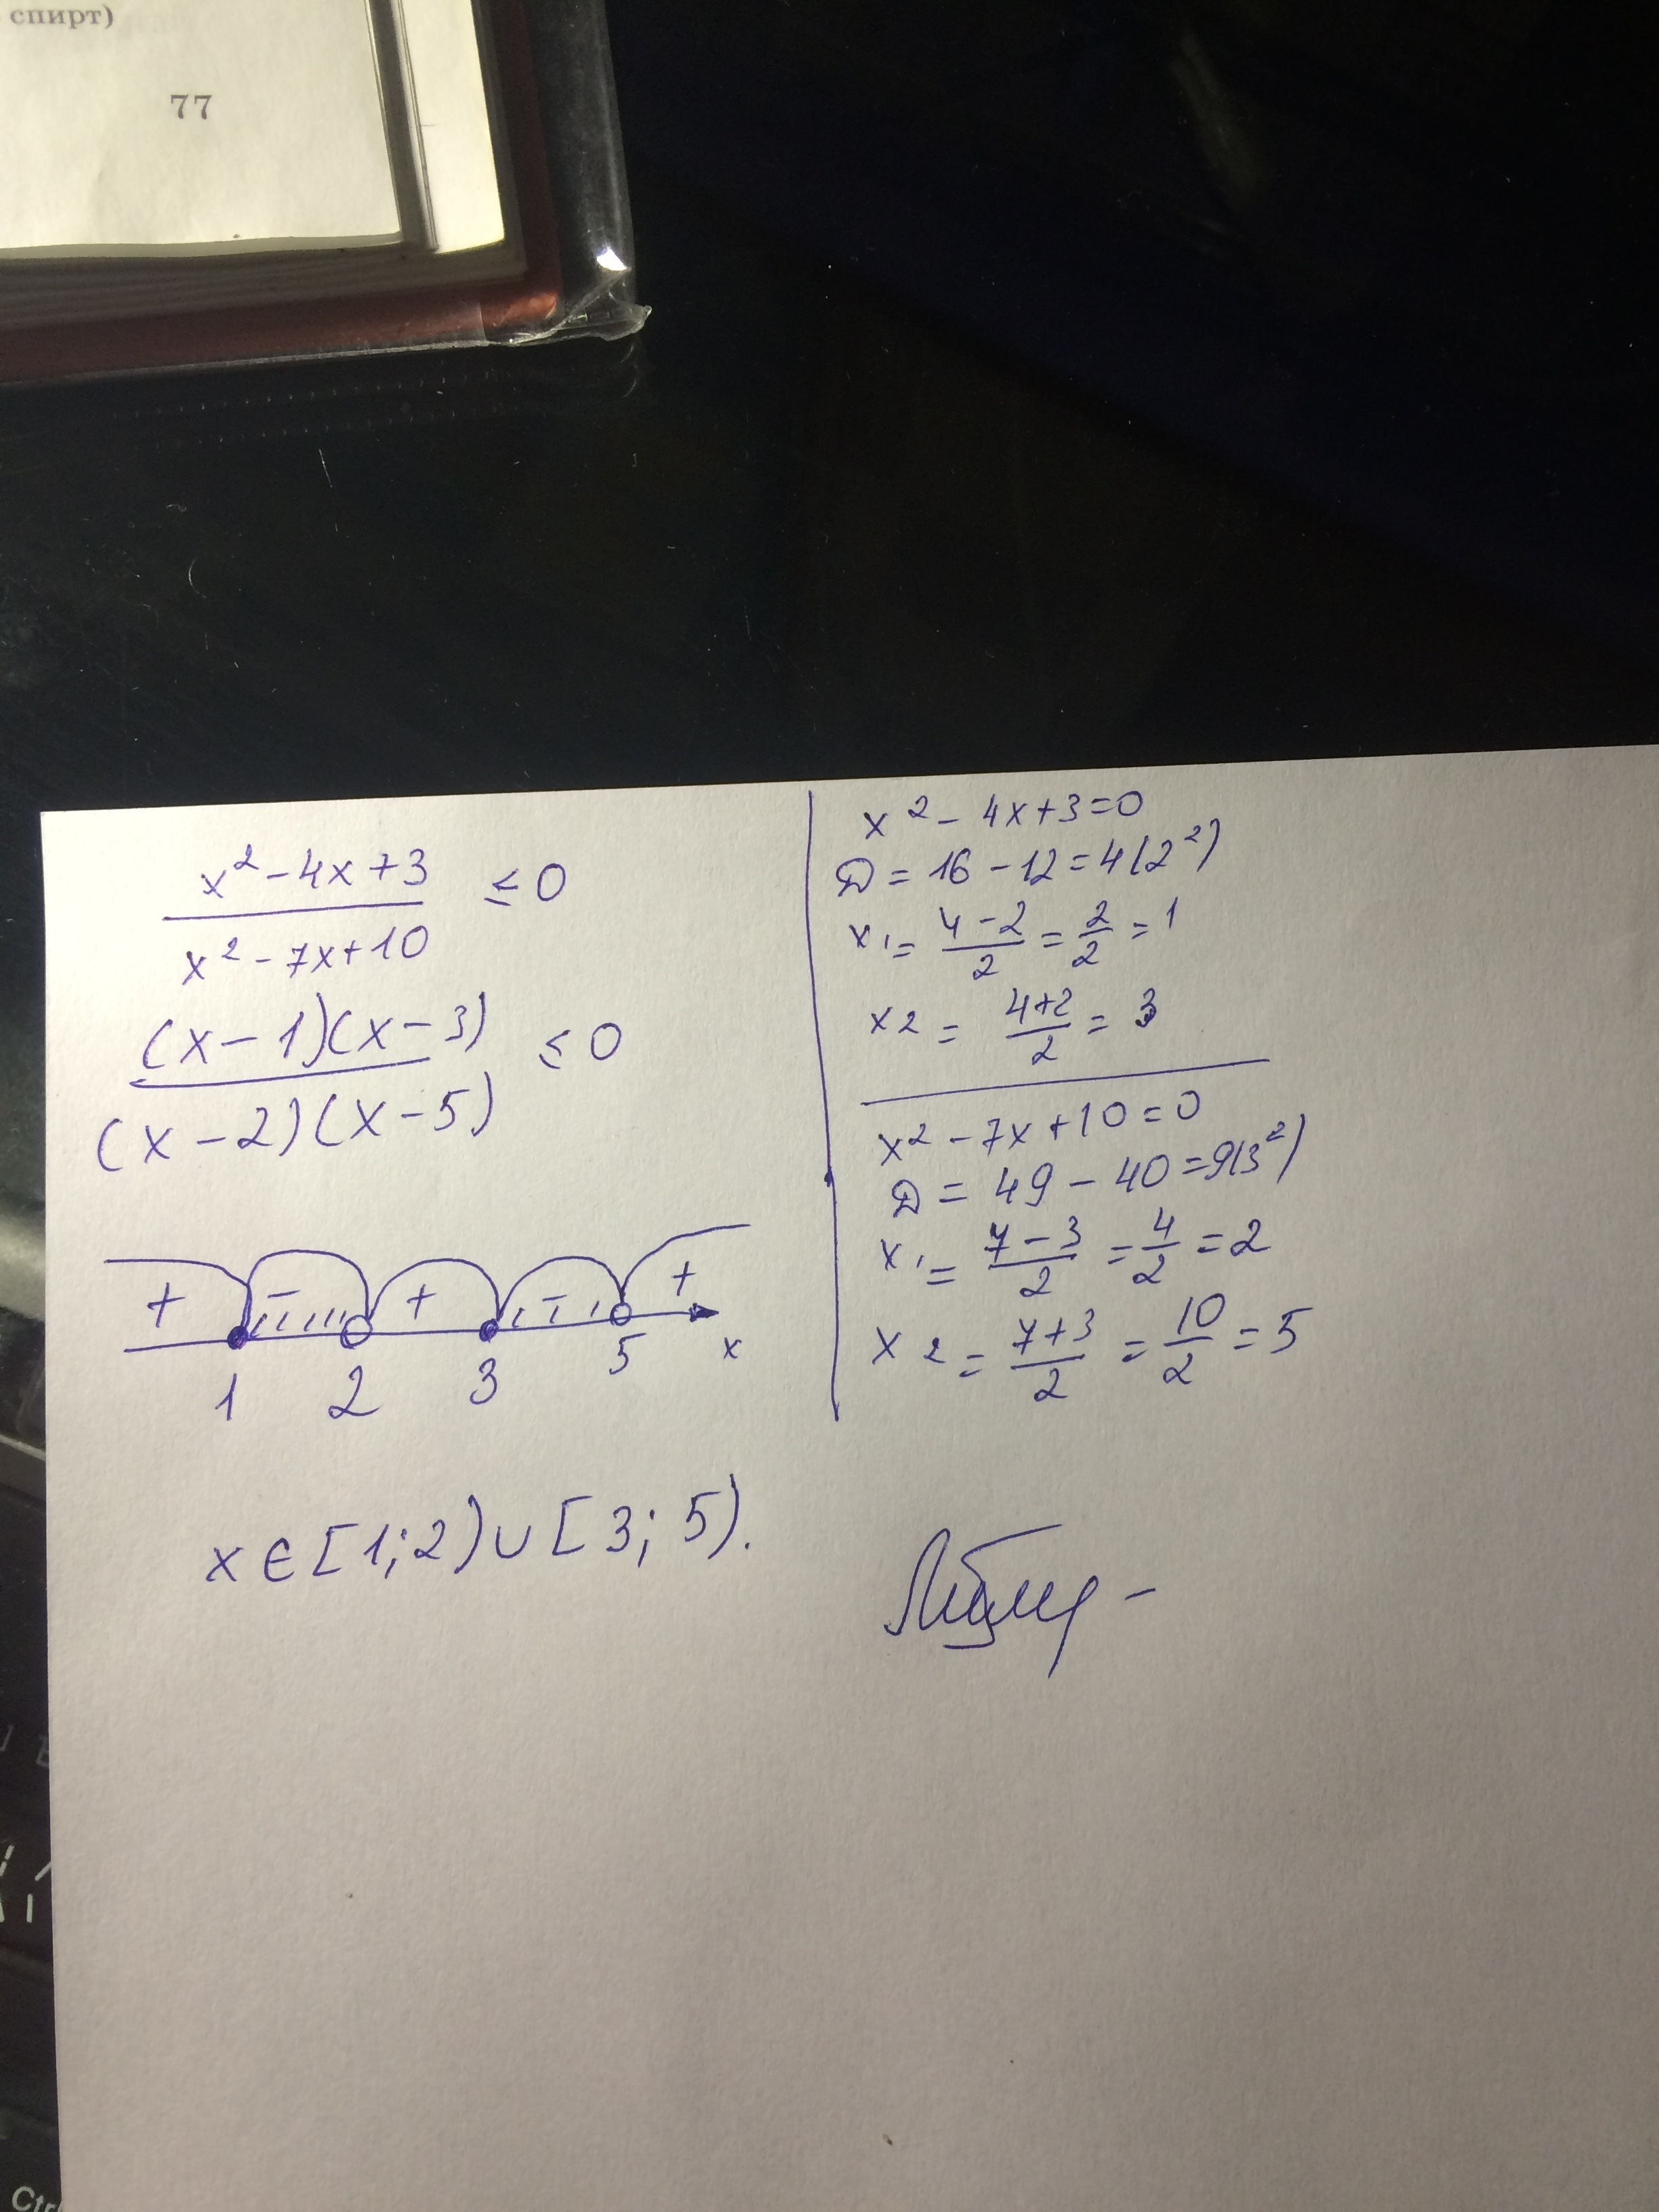 спирт)
77
x² - 4x + 3 / x² - 7x + 10 ≤ 0
(x - 1)(x - 3) / (x - 2)(x - 5) ≤ 0
+ - + - +
1 2 3 5 x
x ∈ [1; 2) ∪ [3; 5).
x² - 4x + 3 = 0
D = 16 - 12 = 4 (2²)
x₁ = 4 - 2 / 2 = 2 / 2 = 1
x₂ = 4 + 2 / 2 = 3
x² - 7x + 10 = 0
D = 49 - 40 = 9 (3²)
x₁ = 7 - 3 / 2 = 4 / 2 = 2
x₂ = 7 + 3 / 2 = 10 / 2 = 5